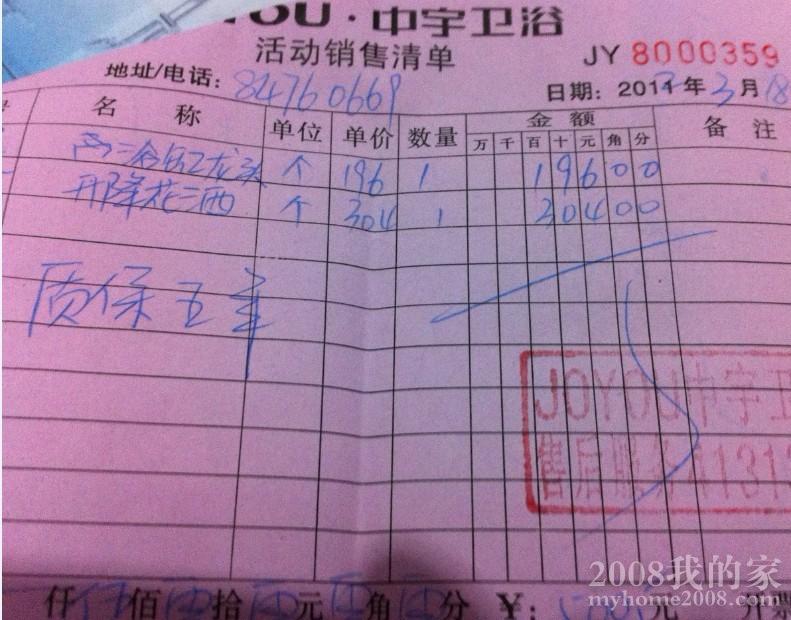 YOU·中宇卫浴
活动销售清单 JY 8000359
地址/电话: 84760669 日期: 2013年3月18
名称 单位 单价 数量 金额 备注
万 千 百 十 元 角 分
龙头 个 196 1 19600
升降花洒 个 304 1 30400
质保五年
JOYOU中宇卫
售后服务4131
仟伍佰 拾 元 角 分 ¥: 元 开票
2008我的家
myhome2008.com